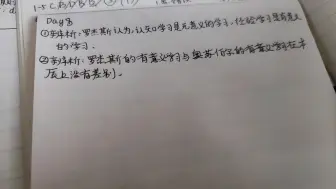 Day 8
①辨析:罗杰斯认为,认知学习是无意义的学习,经验学习是有意义
的学习。
②辨析:罗杰斯的有意义学习与奥苏伯尔的有意义学习在本
质上没有差别。